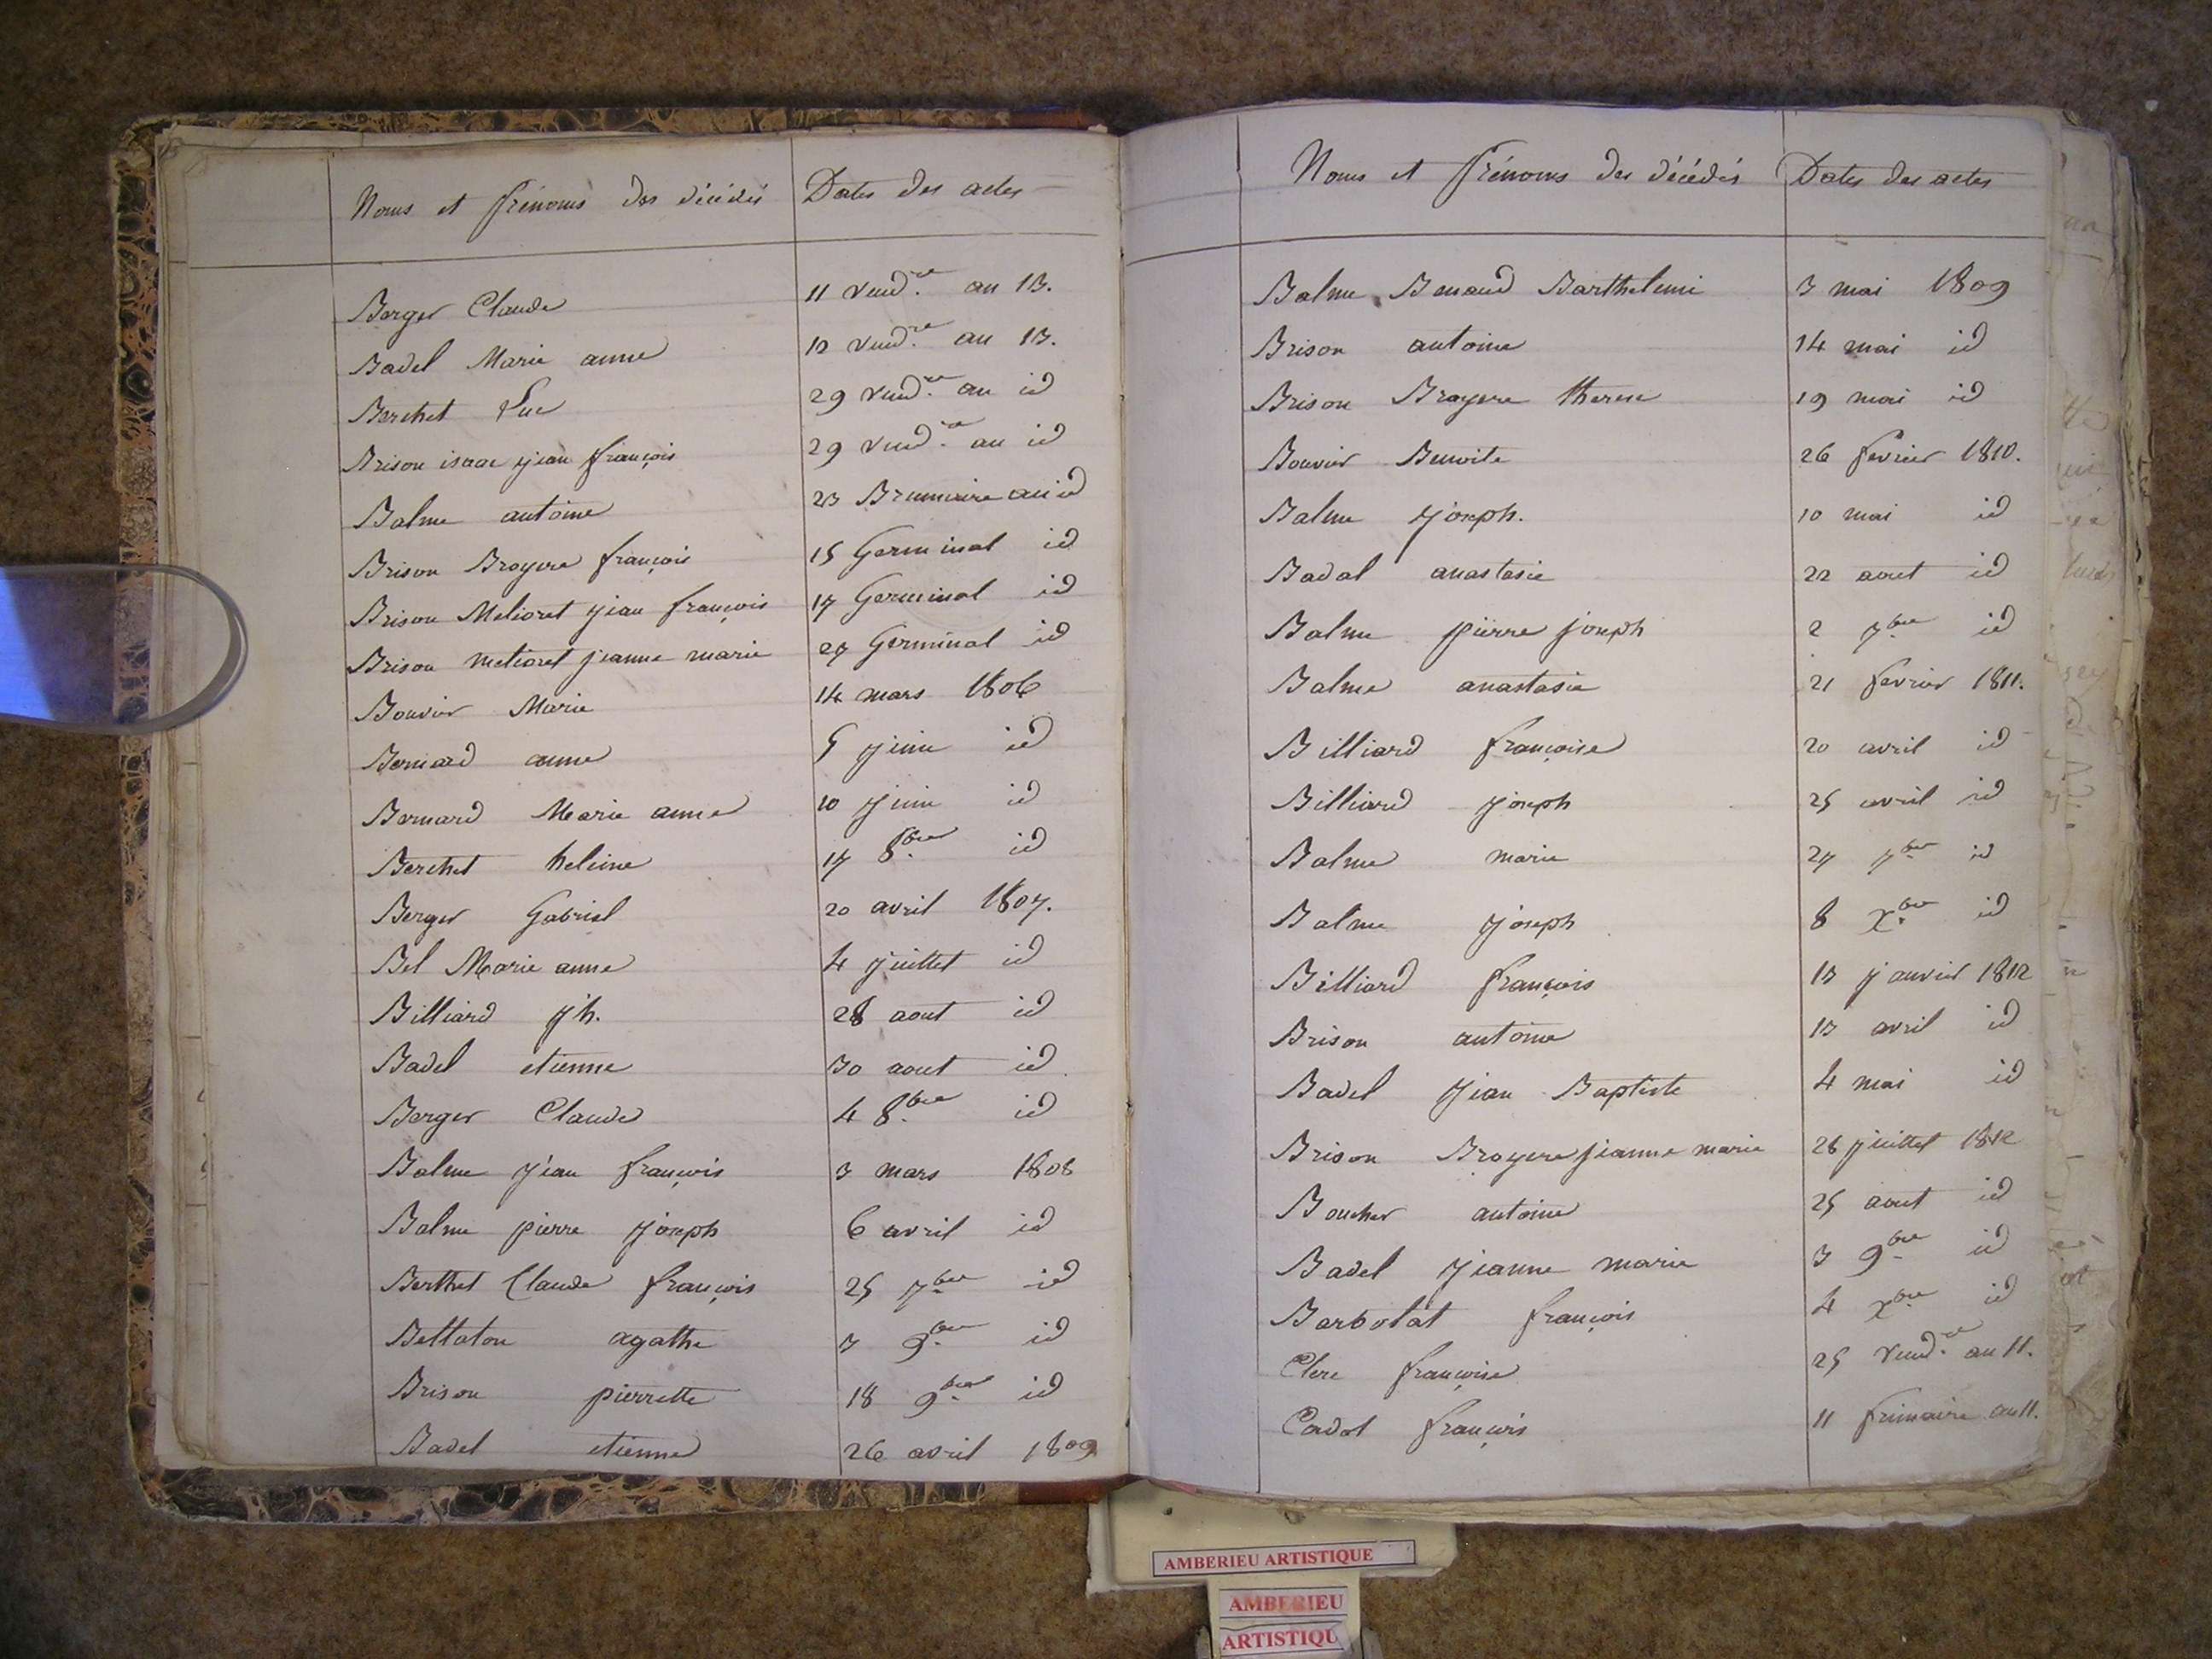 Noms et prénoms des décédés Dates des actes
Berger Claude 11 vend.re an 13.
Badel Marie anne 12 vend.re an 13.
Berchet Luc 29 vend.re an id
Brison isaac jean françois 29 vend.re an id
Balme antoine 23 Brumaire an id
Brison Broyere françois 15 Germinal id
Brison Melioret jean françois 17 Germinal id
Brison melioret jeanne marie 27 Germinal id
Bouvier Marie 14 mars 1806
Bernard anne 5 juin id
Bernard Marie anne 10 juin id
Berchet heleine 17 8.bre id
Berger Gabriel 20 avril 1807.
Bel Marie anne 4 juillet id
Billiard jh. 28 aout id
Badel etienne 30 aout id
Berger Claude 4 8.bre id
Balme jean françois 3 mars 1808
Balme pierre joseph 6 avril id
Berthet Claude françois 25 7.bre id
Bettaton agathe 3 9.bre id
Brison pierrette 18 9.bre id
Badel etienne 26 avril 1809
Noms et prénoms des décédés Dates des actes
Balme Benaud Barthelemi 3 mai 1809
Brison antoine 14 mai id
Brison Broyere therese 19 mai id
Bouvier Benoite 26 fevrier 1810.
Balme joseph. 10 mai id
Badal anastasie 22 aout id
Balme pierre joseph 2 7.bre id
Balme anastasie 21 fevrier 1811.
Billiard françoise 20 avril id
Billiard joseph 25 avril id
Balme marie 27 7.bre id
Balme joseph 8 X.bre id
Billiard françois 13 janvier 1812
Brison antoine 13 avril id
Badel jean Baptiste 4 mai id
Brison Broyere jeanne marie 28 juillet 1812
Boucher antoine 25 aout id
Badel jeanne marie 3 9.bre id
Barbolat françois 4 X.bre id
Clerc françoise 25 vend.re an 11.
Cadot françois 11 frimaire an 11.
AMBERIEU ARTISTIQUE
AMBERIEU
ARTISTIQU